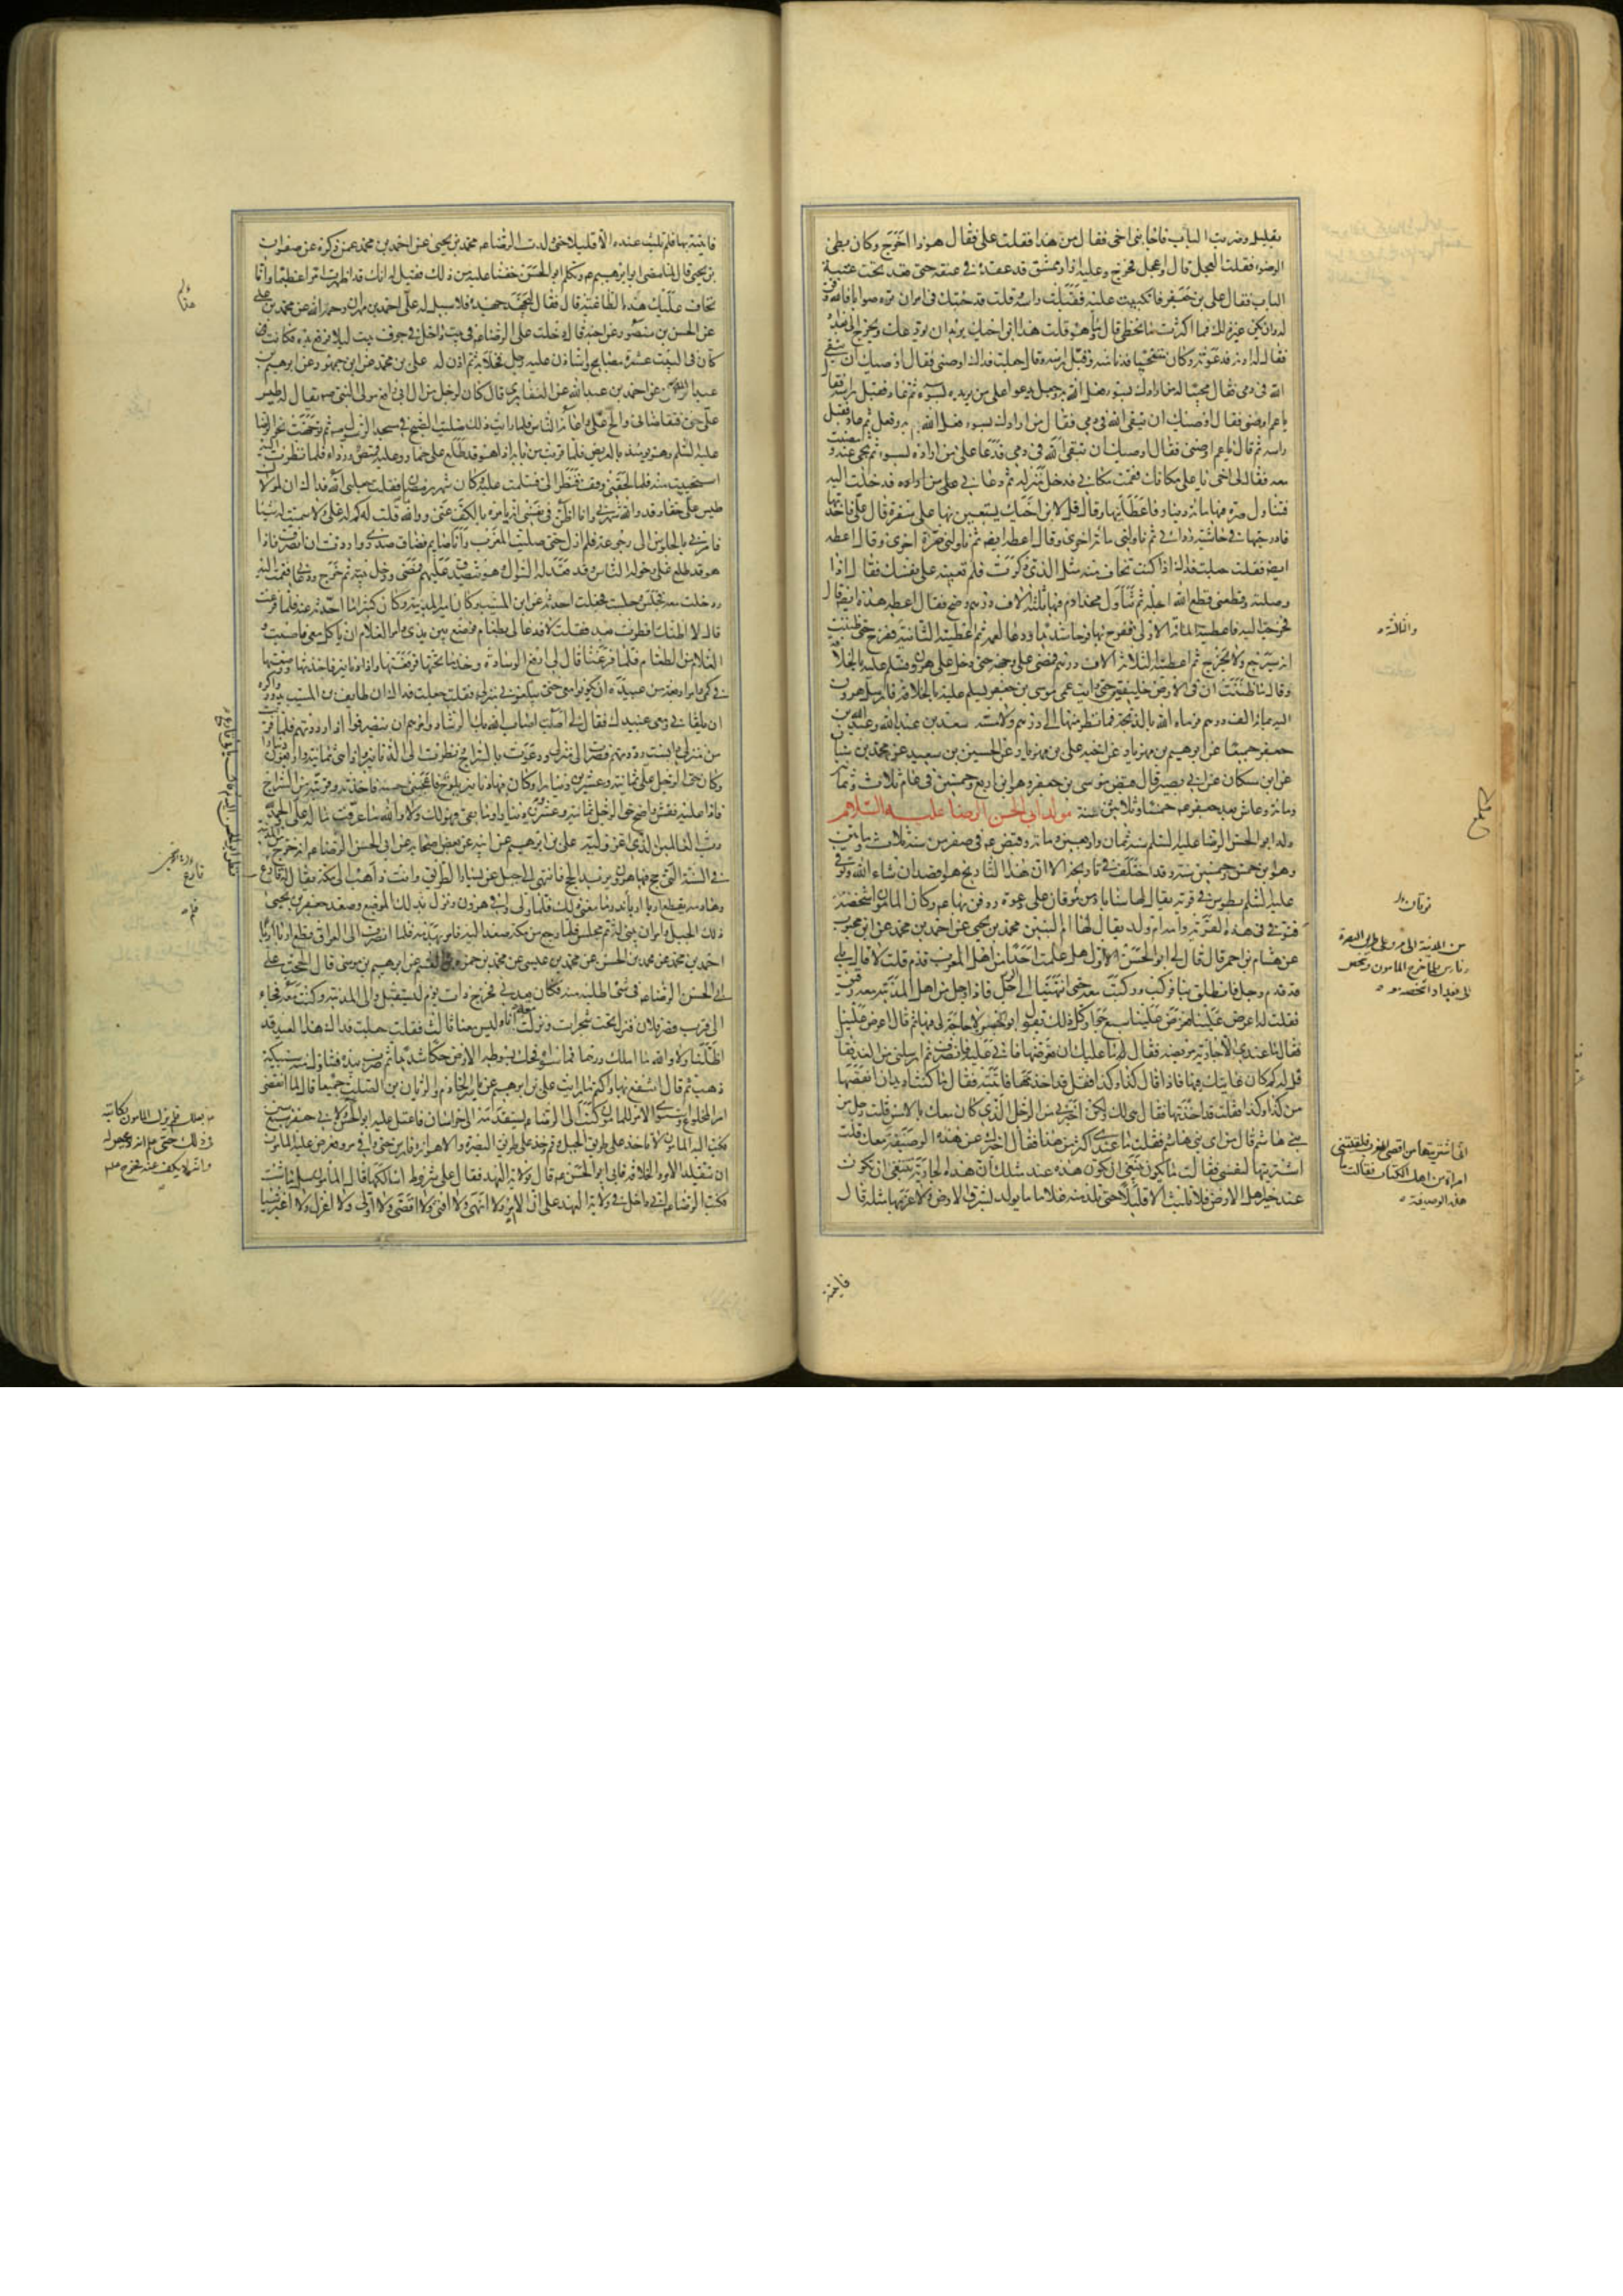 بقليل وضربت الباب فاجابني اخي فقال من هذا فقلت علي فقال هوذا اخرج وكان بطيئ
الوضوء فقلت العجل قال واعجل فخرج وعليه ازار ممشق قد عقده في عنقه حتى قعد تحت عتبة
الباب فقال علي بن جعفر فانكببت عليه فقبلت راسه وقلت قد جئتك في امر ان تره صوابا فالله وفق
له وان يكن غير ذلك فما اكثر ما نخطئ قال وما هو قلت هذا ابن اخيك يريد ان يودعك ويخرج الى بغداد
فقال لي ادعه فدعوته وكان متنحيا فدنا منه وقبل راسه وقال جعلت فداك اوصني فقال اوصيك ان تتقي
الله في دمي فقال مجيبا له من ارادك بسوء فعل الله به وجعل يدعو على من يريده بسوء ثم عاد فقبل راسه فقال
يا عم اوصني فقال اوصيك ان تتقي الله في دمي فقال من ارادك بسوء فعل الله به وفعل ثم عاد فقبل
راسه ثم قال يا عم اوصني فقال اوصيك ان تتقي الله في دمي فدعا على من اراده بسوء ثم تنحى عنه ومضيت
معه فقال لي اخي يا علي مكانك فقمت مكاني فدخل منزله ثم دعاني فدخلت اليه
فتناول صرة فيها مائة دينار فاعطانيها وقال قل لابن اخيك يستعين بها على سفره قال علي فاخذتها
فادرجتها في حاشية ردائي ثم ناولني مائة اخرى وقال اعطه ايضا ثم ناولني صرة اخرى وقال اعطه
ايضا فقلت جعلت فداك اذا كنت تخاف منه مثل الذي ذكرت فلم تعينه على نفسك فقال اذا
وصلته وقطعني قطع الله اجله ثم تناول مخدة ادم فيها ثلثة الاف درهم وضح فقال اعطه هذه ايضا قال
فخرجت اليه فاعطيته المائة الاولى ففرح بها فرحا شديدا ودعا لعمه ثم اعطيته الثانية ففرح حتى ظننت
انه سيرجع ولا يخرج ثم اعطيته الثلاثة الاف درهم فمضى على وجهه حتى دخل على هرون فسلم عليه بالخلافة
وقال ما ظننت ان في الارض خليفتين حتى رايت عمي موسى بن جعفر يسلم عليه بالخلافة فارسل هرون
اليه بمائة الف درهم فرماه الله بالذبحة فما نظر منها الى درهم ولا مسه سعد بن عبد الله وعبد الله بن
جعفر جميعا عن ابرهيم بن مهزيار عن اخيه علي بن مهزيار عن الحسين بن سعيد عن محمد بن سنان
عن ابن مسكان عن ابي بصير قال قبض موسى بن جعفر وهو ابن اربع وخمسين في عام ثلاث وثمانين
ومائة وعاش بعد جعفر عم خمسا وثلاثين سنة مولد ابي الحسن الرضا عليه السلام
ولد ابو الحسن الرضا عليه السلم سنة ثمان واربعين ومائة وقبض عم في صفر من سنة ثلاث ومايتين
وهو ابن خمس وخمسين سنة وقد اختلف في تاريخه الا ان هذا التاريخ هو اقصد ان شاء الله وتوفي
عليه السلم بطوس في قرية يقال لها سناباد من نوقان على دعوة ودفن بها عم وكان المامون اشخصه
فتوفي في هذه القرية وامه ام ولد يقال لها ام البنين محمد بن يحيى عن احمد بن محمد عن ابن محبوب
عن هشام بن احمر قال قال لي ابو الحسن الاول هل علمت احدا من اهل المغرب قدم قلت لا قال بلى
قد قدم رجل فانطلق بنا فركب وركبت معه حتى انتهينا الى الرجل فاذا رجل من اهل المدينة معه رقيق
فقلت له اعرض علينا فعرض علينا سبع جوار كل ذلك يقول ابو الحسن لا حاجة لي فيها ثم قال اعرض علينا
فقال ما عندي الا جارية مريضة فقال له ما عليك ان تعرضها فابى عليه فانصرف ثم ارسلني من الغد فقال
قل له كم كان غايتك فيها فاذا قال كذا وكذا فقل قد اخذتها فاتيته فقال ما كنت اريد ان انقصها
من كذا وكذا فقلت قد اخذتها فقال هي لك ولكن اخبرني من الرجل الذي كان معك بالامس قلت رجل من
بني هاشم قال من اي بني هاشم فقلت ما عندي اكثر من هذا فقال اخبرك عن هذه الوصيفة معك قلت
اشتريتها لنفسي فقالت ما يكون ينبغي ان تكون هذه عند مثلك ان هذه الجارية ينبغي ان تكون
عند خير اهل الارض فلا تلبث الا قليلا حتى تلد منه غلاما ما يولد بشرق الارض ولا غربها مثله قال
والثالثة
نوقان
من المدينة الى مرو على طريق البصرة
وفارس فلما خرج المامون وشخص
الى بغداد اشخصه معه
اني اشتريتها من اقصى المغرب فلقيتني
امراة من اهل الكتاب فقالت ما
هذه الوصيفة
فاتيته
فاتيته بها فلم تلبث عنده الا قليلا حتى ولدت الرضا عم محمد بن يحيى عن احمد بن محمد عمن ذكره عن صفوان
بن يحيى قال لما مضى ابو ابرهيم عم وتكلم ابو الحسن خفنا عليه من ذلك فقيل له انك قد اظهرت امرا عظيما وانا
نخاف عليك هذا الطاغية قال فقال ليجهد جهده فلا سبيل له علي احمد بن مهران رحمه الله عن محمد بن علي
عن الحسن بن منصور عن اخيه قال دخلت على الرضا عم في بيت داخل في جوف بيت ليلا فرفع يده فكانت
كان في البيت عشرة مصابيح واستاذن عليه رجل فخلا يده ثم اذن له علي بن محمد عن ابن جمهور عن ابرهيم بن
عبد الله عن احمد بن عبد الله عن الغفاري قال كان لرجل من ال ابي رافع مولى النبي صم يقال له طيس
علي حق فتقاضاني والح علي واعانه الناس فلما رايت ذلك صليت الصبح في مسجد الرسول صم ثم توجهت نحو الرضا
عليه السلم وهو يومئذ بالعريض فلما قربت من بابه اذا هو قد طلع على حمار وعليه قميص ورداء فلما نظرت اليه
استحييت منه فلما لحقني وقف فنظر الي فسلمت عليه وكان شهر رمضان فقلت جعلني الله فداك ان لمولاك
طيس علي حقا وقد والله شهرني وانا اظن في نفسي انه يامره بالكف عني ووالله ما قلت له كم له علي ولا سميت له شيئا
فامرني بالجلوس الى رجوعه فلم ازل حتى صليت المغرب وانا صايم فضاق صدري واردت ان انصرف فاذا
هو قد طلع علي وحوله الناس وقد قعد له السؤال وهو يتصدق عليهم فمضى ودخل بيته ثم خرج ودعاني فقمت اليه
ودخلت معه فجلس وجلست فجعلت احدثه عن ابن المسيب وكان امير المدينة وكان كثيرا ما احدثه عنه فلما فرغت
قال لا اظنك افطرت بعد فقلت لا فدعا لي بطعام فوضع بين يدي وامر الغلام ان ياكل معي فاصبت و
الغلام من الطعام فلما فرغنا قال لي ارفع الوسادة وخذ ما تحتها فرفعتها واذا دنانير فاخذتها ووضعتها
في كمي وامر اربعة من عبيده ان يكونوا معي حتى يبلغوني منزلي فقلت جعلت فداك ان طائف بن المسيب يدور واكره
ان يلقاني ومعي عبيدك فقال لي اصبت اصاب الله بك الرشاد وامرهم ان ينصرفوا اذا رددتهم فلما قربت
من منزلي وانست رددتهم فصرت الى منزلي ودعوت بالسراج ونظرت الى الدنانير واذا هي ثمانية واربعون دينارا
وكان حق الرجل علي ثمانية وعشرين دينارا وكان فيها دينار يلوح فاعجبني حسنه فاخذته وقربته من السراج
فاذا عليه نقش واضح حق الرجل ثمانية وعشرون دينارا وما بقي فهو لك ولا والله ما عرفت ما له علي والحمد لله
رب العالمين الذي اعز وليه علي بن ابرهيم عن ابيه عن بعض اصحابه عن ابي الحسن الرضا عم انه خرج من المدينة
في السنة التي حج فيها هرون يريد الحج فانتهى الى جبل عن يسار الطريق وانت ذاهب الى مكة يقال له فارع
وهادمه يقطع اربا اربا فلم ندر ما معنى ذلك فلما ولى وافى هرون ونزل بذلك الموضع وصعد جعفر بن يحيى
ذلك الجبل وامر ان يبنى له ثم مجلس فلما رجع من مكة صعد اليه فامر بهدمه فلما انصرف الى العراق قطع اربا اربا
احمد بن محمد عن محمد بن الحسن عن محمد بن عيسى عن محمد بن حمزة بن القسم عن ابرهيم بن موسى قال الححت على
ابي الحسن الرضا عم في شيء اطلبه منه فكان يعدني فخرج ذات يوم ليستقبل والي المدينة وكنت معه فجاء
الى قرب قصر فلان فنزل تحت شجرات ونزلت معه انا وليس معنا ثالث فقلت جعلت فداك هذا العيد قد
اظلنا ولا والله ما املك درهما فما سواه فحك بسوطه الارض حكا شديدا ثم ضرب بيده فتناول منه سبيكة
ذهب ثم قال انتفع بها واكتم ما رايت علي بن ابرهيم عن ياسر الخادم والريان بن الصلت جميعا قال لما انقضى
امر المخلوع واستوى الامر للمامون كتب الى الرضا عم يستقدمه الى خراسان فاعتل عليه ابو الحسن
فكتب اليه المامون لا تاخذ على طريق الجبل وقم وخذ على طريق البصرة والاهواز وفارس حتى وافى مرو فعرض عليه المامون
ان يتقلد الامر والخلافة فابى ابو الحسن عم قال فولاية العهد فقال على شروط اسالكها قال المامون سل ما شئت
فكتب الرضا عم اني داخل في ولاية العهد على ان لا امر ولا انهى ولا افتي ولا اقضي ولا اولي ولا اعزل ولا اغير شيئا
فارع
بعلل فلم يزل المامون يكاتبه
في ذلك حتى علم انه لا محيص له
وانه لا يكف عنه فخرج عم